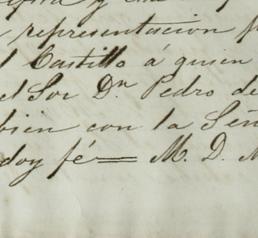 y
representacion
Castillo á quien
el Sor Dn Pedro de
bien con la Señ
doy fé= M. D. M